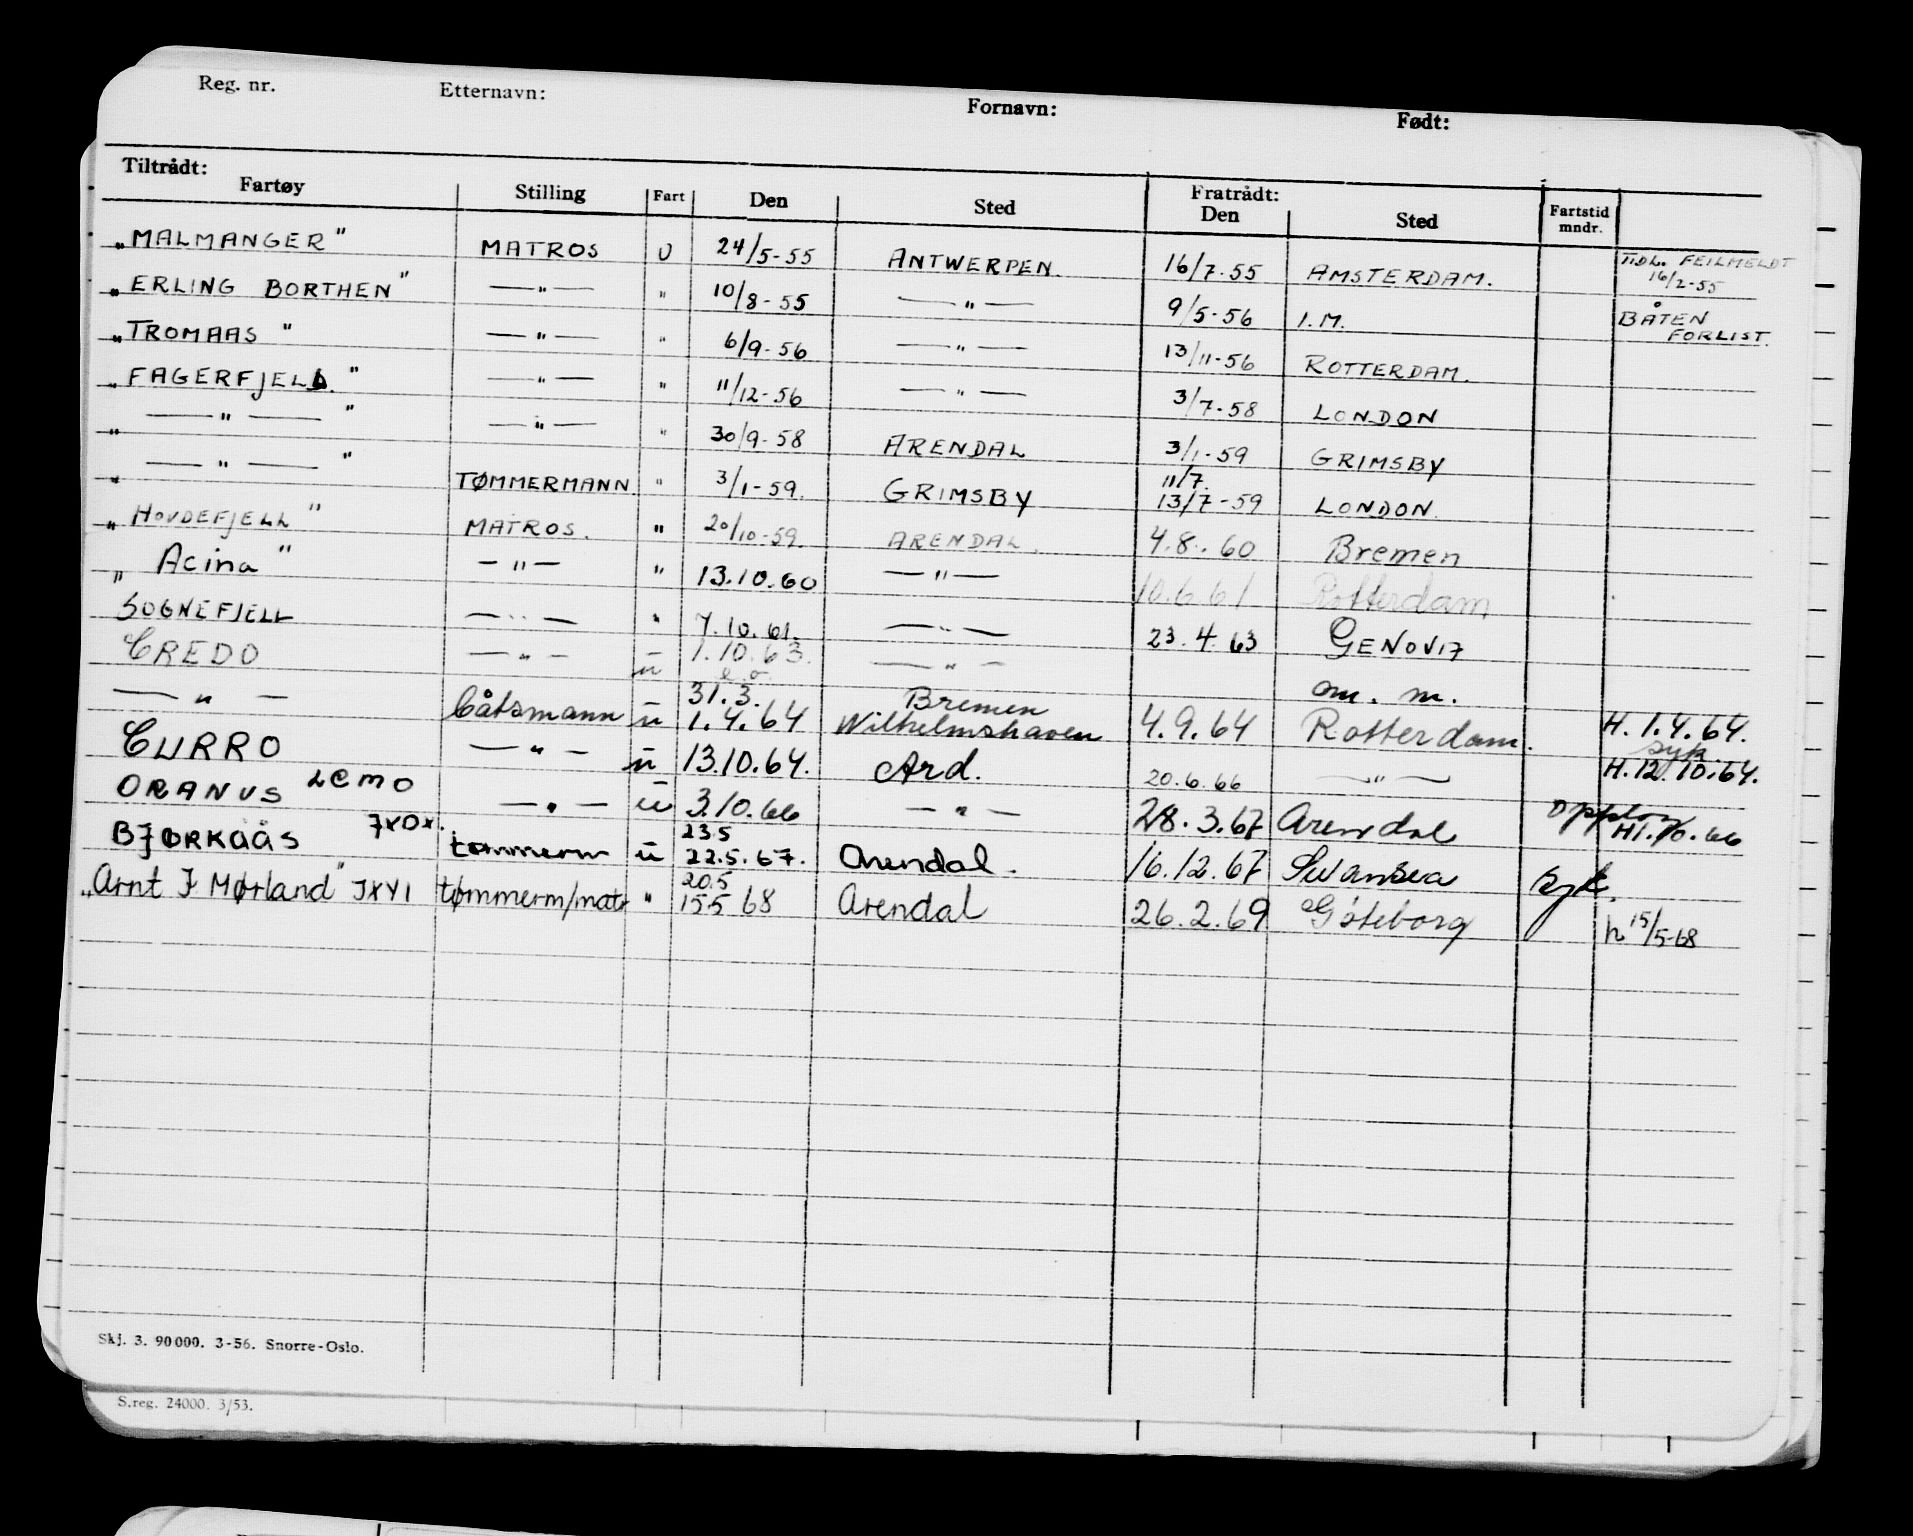 Reg. nr. Etternavn: Fornavn: Født:
Tiltrådt: Fratrådt:
Fartøy Stilling Fart Den Sted Den Sted Fartstid mndr.
„MALMANGER" MATROS U 24/5-55 ANTWERPEN. 16/7-55 AMSTERDAM. TIDL. FEILMELDT 16/2-55
„ERLING BORTHEN" —"— " 10/8-55 —"— 9/5-56 I.M. BÅTEN FORLIST.
„TROMAAS" —"— " 6/9-56 —"— 13/11-56 ROTTERDAM.
„FAGERFJELL." —"— " 11/12-56 —"— 3/7-58 LONDON
„—"—" —"— " 30/9-58 ARENDAL 3/1-59 GRIMSBY
„—"—" TØMMERMANN " 3/1-59. GRIMSBY 11/7. 13/7-59 LONDON.
„HOVDEFJELL" MATROS. " 20/10-59. ARENDAL. 4.8.60 Bremen
„Acina" —"— " 13.10.60 —"— 10.6.61 Rotterdam
SOGNEFJELL —"— " 7.10.61. —"— 23.4.63 GENOVA
CREDO —"— u 1.10.63. e.o. —"— m. m.
—"— båtsmann u 31.3. 1.4.64 Bremen Wilhelmshaven 4.9.64 Rotterdam. H. 1.4.64. syk
CURRO —"— u 13.10.64. Ard. 20.6.66 —"— H. 12.10.64.
ORANUS LCMO —"— u 3.10.66 —"— 28.3.67 Arendal opplag H1.10.66
BJORKAAS JXOX. tømmerm u 23.5 22.5.67. Arendal. 16.12.67 Swansea syk.
„Arnt J Mørland" JXYI tømmerm/matr " 20.5 15.5 68 Arendal 26.2.69 Göteborg h 15/5-68
Skj. 3. 90000. 3-56. Snorre-Oslo.
S.reg. 24000. 3/53.